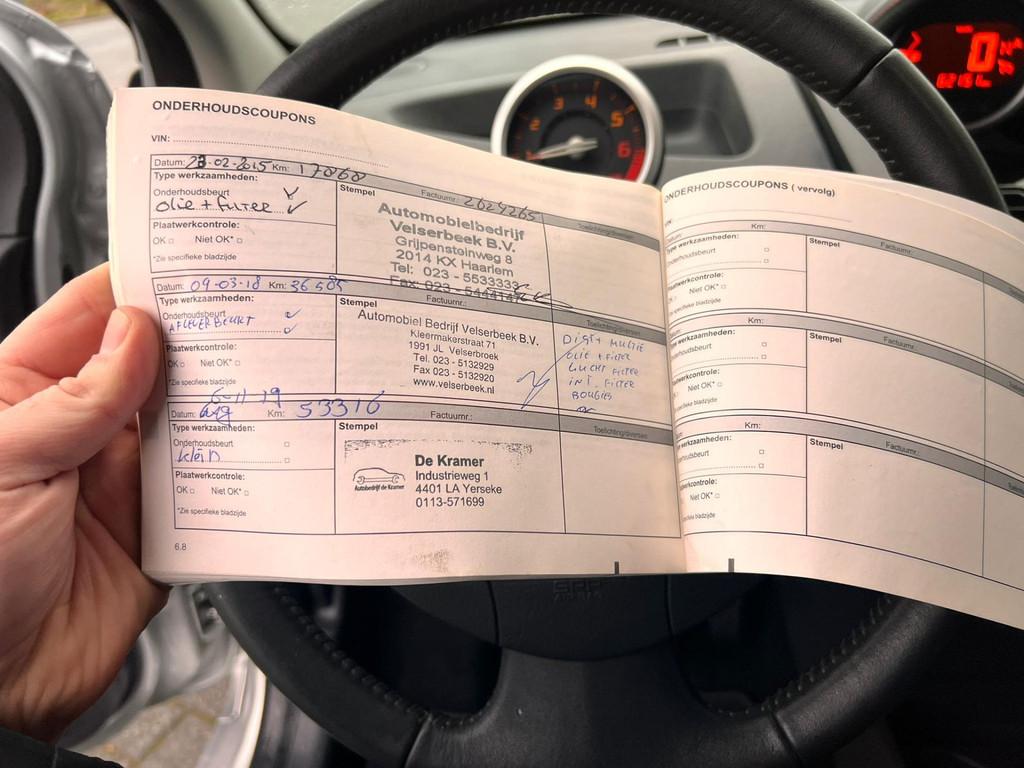 ONDERHOUDSCOUPONS
VIN:
Datum: 23-02-2015 Km: 17060 Factuurnr.: 2629265
Type werkzaamheden:
Onderhoudsbeurt
olie + filter
Plaatwerkcontrole:
OK Niet OK*
*Zie specifieke bladzijde
Stempel
Automobielbedrijf
Velserbeek B.V.
Grijpensteinweg 8
2014 KX Haarlem
Tel: 023 - 5533333
Fax: 023 - 5444147
Toelichting/diversen
Datum: 09-03-18 Km: 36585 Factuurnr.:
Type werkzaamheden:
Onderhoudsbeurt
AFLEVERBEURT
Plaatwerkcontrole:
OK Niet OK*
*Zie specifieke bladzijde
Stempel
Automobiel Bedrijf Velserbeek B.V.
Kleermakerstraat 71
1991 JL Velserbroek
Tel. 023 - 5132929
Fax 023 - 5132920
www.velserbeek.nl
Toelichting/diversen
DIST + MULTIE
OLIE + FILTER
LUCHT FILTER
INT. FILTER
BOUGIES
6-11-19
Datum: Km: 53316 Factuurnr.:
Type werkzaamheden:
Onderhoudsbeurt
klein
Plaatwerkcontrole:
OK Niet OK*
*Zie specifieke bladzijde
Stempel
Autobedrijf de Kramer
De Kramer
Industrieweg 1
4401 LA Yerseke
0113-571699
Toelichting/diversen
6.8
ONDERHOUDSCOUPONS ( vervolg)
Datum: Km: Factuurnr.:
Type werkzaamheden:
Onderhoudsbeurt
Plaatwerkcontrole:
OK Niet OK*
Stempel
Km: Factuurnr.:
Type werkzaamheden:
Onderhoudsbeurt
Plaatwerkcontrole:
Niet OK*
Stempel
Km: Factuurnr.:
werkzaamheden:
Niet OK*
Stempel
2 3 4 5 6
0